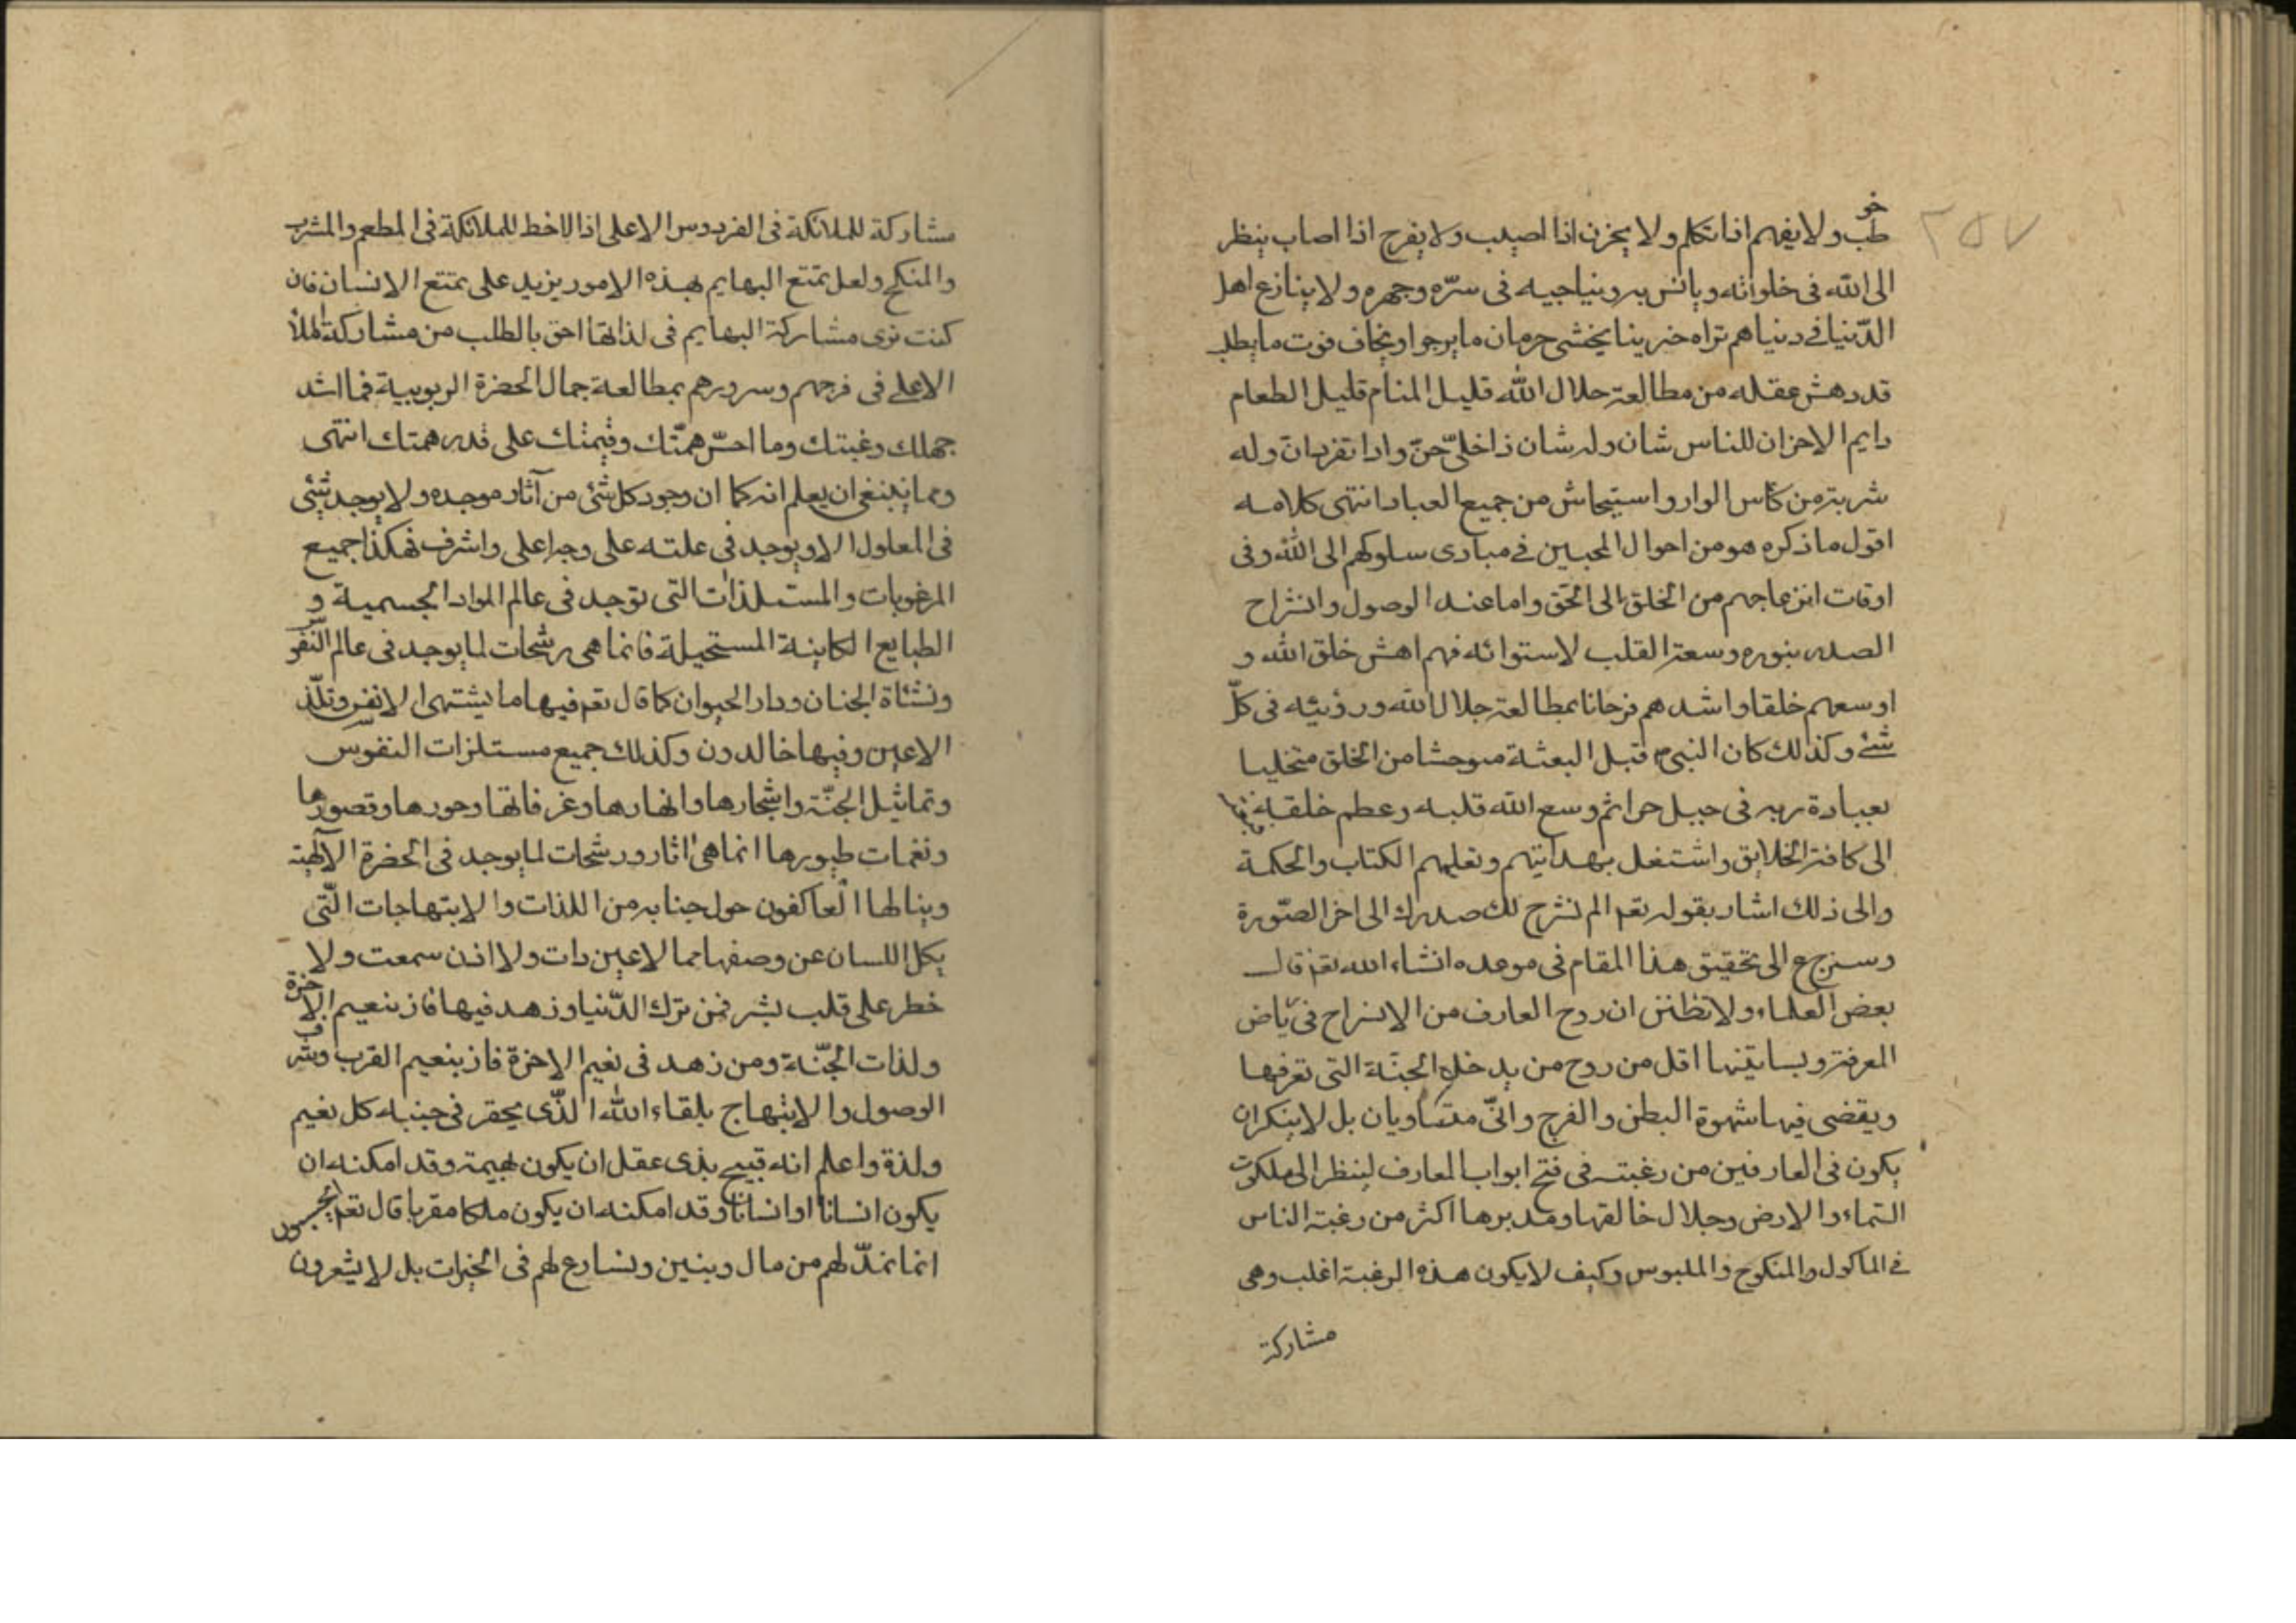 ٢٥٧
خوطب ولا يفهم اذا تكلم ولا يحزن اذا اصيب ولا يفرح اذا اصاب ينظر
الى الله فى خلواته ويانس به ويناجيه فى سرّه وجهره ولا ينازع اهل
الدّنيا فى دنياهم تراه حزينا يخشى حرمان ما يرجوا ويخاف فوت ما يطلب
قد دهش عقله من مطالعة جلال الله قليل المنام قليل الطعام
دايم الاحزان للناس شان وله شان اذا خلى حنّ واذا تفرد انّ وله
شربة من كأس الوداد واستيحاش من جميع العباد انتهى كلامه
اقول ما ذكره هو من احوال المحبين فى مبادى سلوكهم الى الله وفى
اوقات انزعاجهم من الخلق الى الحق واما عند الوصول وانشراح
الصدر بنوره وسعة القلب لاستوائه فهم اهش خلق الله و
اوسعهم خلقا واشدهم فرحانا بمطالعة جلال الله ورؤيته فى كلّ
شئ وكذلك كان النبى قبل البعثة متوحشا من الخلق متخليا
بعبادة ربه فى جبل حرا ثم وسع الله قلبه وعظم خلقه
الى كافة الخلايق واشتغل بهدايتهم وتعليمهم الكتاب والحكمة
والى ذلك اشار بقوله تعم الم نشرح لك صدرك الى اخر الصّورة
وسنرجع الى تحقيق هذا المقام فى موعده انشاء الله تعم قال
بعض العلماء ولا تظنن ان روح العارف من الانشراح فى رياض
المعرفة وبساتينها اقل من روح من يدخل الجنّة التى تعرفها
ويقضى فيها شهوة البطن والفرج وانّى متساويان بل لا ينكر ان
يكون فى العارفين من رغبته فى فتح ابواب المعارف لينظر الى ملكوت
السّماء والارض وجلال خالقها ومدبرها اكثر من رغبة الناس
فى الماكول والمنكوح والملبوس وكيف لا يكون هذه الرغبة اغلب وهى
مشاركة
مشاركة للملائكة فى الفردوس الاعلى اذ لا حظ للملائكة فى المطعم والمشرب
والمنكح ولعل تمتع البهايم بهذه الامور يزيد على تمتع الانسان فان
كنت ترى مشاركة البهايم فى لذاتها احق بالطلب من مشاركة الملأ
الاعلى فى فرحهم وسرورهم بمطالعة جمال الحضرة الربوبية فما اشد
جهلك وغبنك وما اخسّ همّتك وقيمتك على قدر همتك انتهى
ومما ينبغى ان يعلم انه كما ان وجود كل شئ من آثار موجده ولا يوجد شئ
فى المعلول الا ويوجد فى علته على وجه اعلى واشرف فهكذا جميع
المرغوبات والمستلذات التى توجد فى عالم المواد الجسمية و
الطبايع الكاينة المستحيلة فانما هى رشحات لما يوجد فى عالم النّفوس
ونشاة الجنان ودار الحيوان كما قال تعم فيها ما يشتهى الانفس وتلّذ
الاعين وفيها خالدون وكذلك جميع مستلزات النفوس
وتماثيل الجنّة واشجارها وانهارها وغرفاتها وحورها وقصورها
ونغمات طيورها انما هى اثار ورشحات لما يوجد فى الحضرة الآلهيّة
وينالها العاكفون حول جنابه من اللذات والابتهاجات الّتى
يكل اللسان عن وصفها مما لا عين رات ولا اذن سمعت ولا
خطر على قلب بشر فمن ترك الدّنيا وزهد فيها فاز بنعيم الاخرة
ولذات الجّنة ومن زهد فى نعيم الاخرة فاز بنعيم القرب وشرف
الوصول والابتهاج بلقاء الله الذّى يحقر فى جنبه كل نعيم
ولذة واعلم انه قبيح بذى عقل ان يكون بهيمة وقد امكنه ان
يكون انسانا او انسانا وقد امكنه ان يكون ملكا مقربا قال تعم ايحسبون
انما نمدّ لهم من مال وبنين ونسارع لهم فى الخيرات بل لا يشعرون